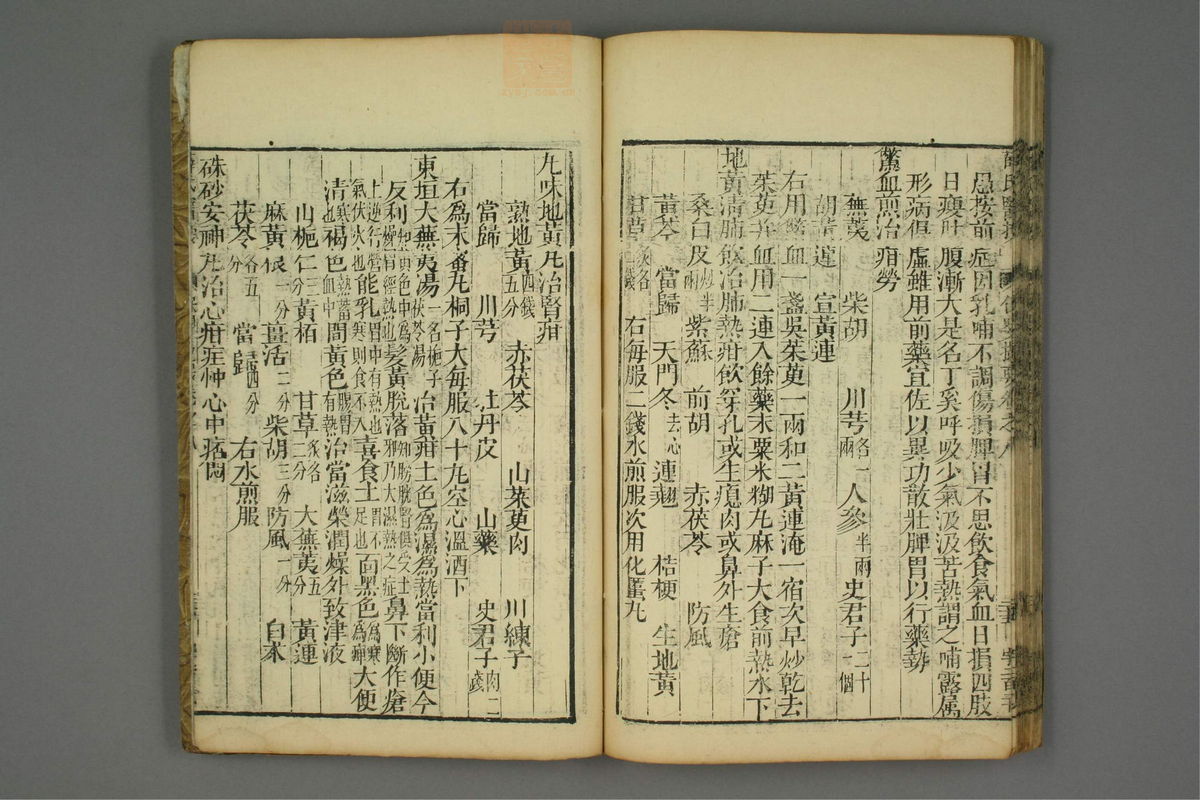 愚按前症因乳哺不調傷損脾胃不思飲食氣血日損四肢
日瘦吐腹漸大是名丁奚呼吸少氣汲汲苦熱謂之哺露属
形病俱虛雖用前藥宜佐以異功散壯脾胃以行藥勢
鱉血煎治疳勞
蕪荑 柴胡 川芎各一兩 人參半兩 史君子二十一個
胡黃連 宣黃連
右用鱉血一盞吳茱萸一兩和二黃連淹一宿次早炒乾去
茱萸并血用二連入餘藥末粟米糊丸麻子大食前熱水下
地黃清肺飲治肺熱疳飲穿孔或生瘜肉或鼻外生瘡
桑白皮炒半兩 紫蘇 前胡 赤茯苓 防風
黃芩 當歸 天門冬去心 連翹 桔梗 生地黃
甘草炙各二錢 右每服二錢水煎服次用化䘌丸
九味地黃丸治腎疳
熟地黃四錢五分 赤茯苓 山茱萸肉 川練子
當歸 川芎 牡丹皮 山藥 史君子肉二錢
右爲末蜜丸桐子大每服八十丸空心溫酒下
東垣大蕪荑湯一名梔子茯苓湯 治黃疳土色爲濕爲熱當利小便今
反利知黃色中爲燥胃經熱也髮黃脫落知膀胱腎俱受土邪乃大濕熱之症鼻下斷作瘡
上逆行營氣伏火也能乳胃中有熱也寒則食不入喜食土胃不足也面黑色爲寒爲痺大便
清寒也褐色血中熱蓄間黃色腸胃有熱治當滋榮潤燥外致津液
山梔仁三分 黃栢 甘草炙各二分 大蕪荑五分 黃連
麻黃根一分 羌活二分 柴胡三分 防風一分 白朮
茯苓各五分 當歸四分 右水煎服
硃砂安神丸治心疳症忡心中痞悶